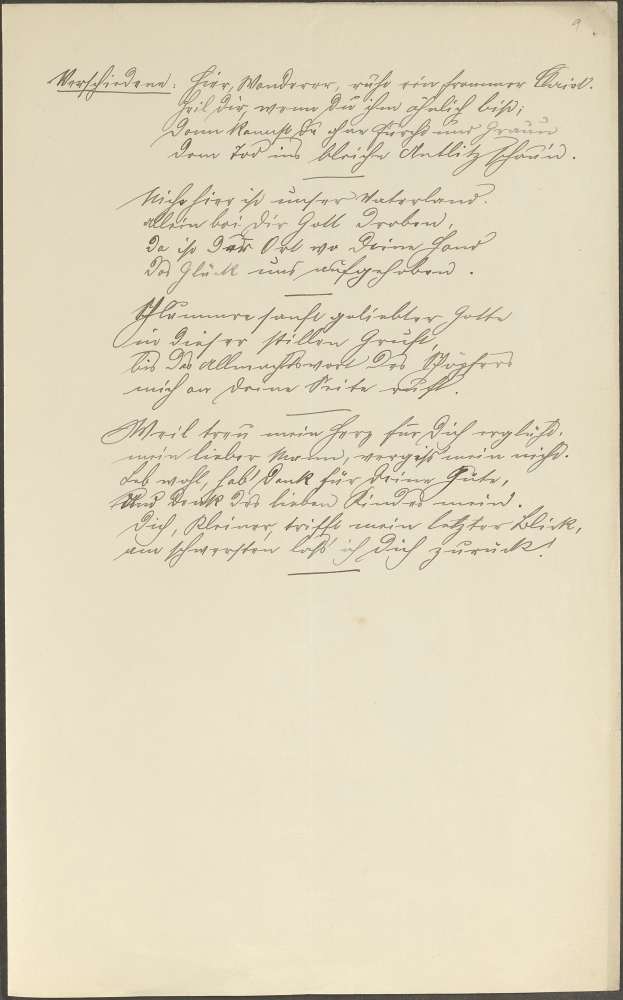 9.
Verschiedene: Hier, Wanderer, ruht ein frommer Christ.
Heil Dir, wenn Du ihm ähnlich bist;
Dann kannst Du ohne Furcht und Graun
Dem Tod ins bleiche Antlitz schaun.
Nicht hier ist unser Vaterland.
Allein bei Dir Gott droben,
Da ist der Ort wo Deine Hand
Das Glück uns aufgehoben.
Schlummre sanft geliebter Gatte
in dieser stillen Gruft,
bis das Allmachtswort des Schöpfers
mich an Deine Seite ruft.
Weil treu mein Herz für Dich erglüht,
mein lieber Mann, vergiß mein nicht.
Leb wohl, hab' Dank für Deine Güte,
Und denk des lieben Kindes mein.
Dich, Kleiner, trifft mein letzter Blick,
am schwersten laß' ich Dich zurück!